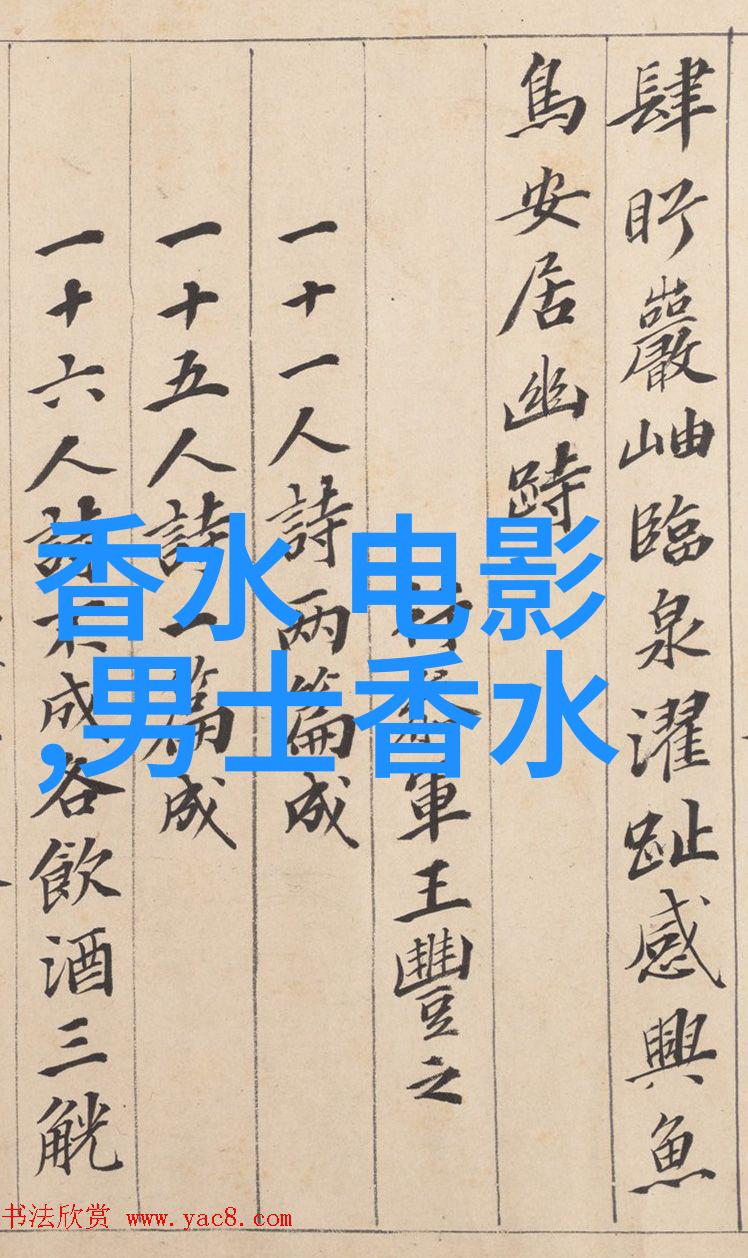 肆巖岫臨泉濯趾感興魚
鳥安居幽跱
行參軍王豐之
一十一人詩两篇成
一十五人詩一篇成
一十六人詩不成各飲酒三觥
香水 电影
,男士香水
书法欣赏 www.yac8.com